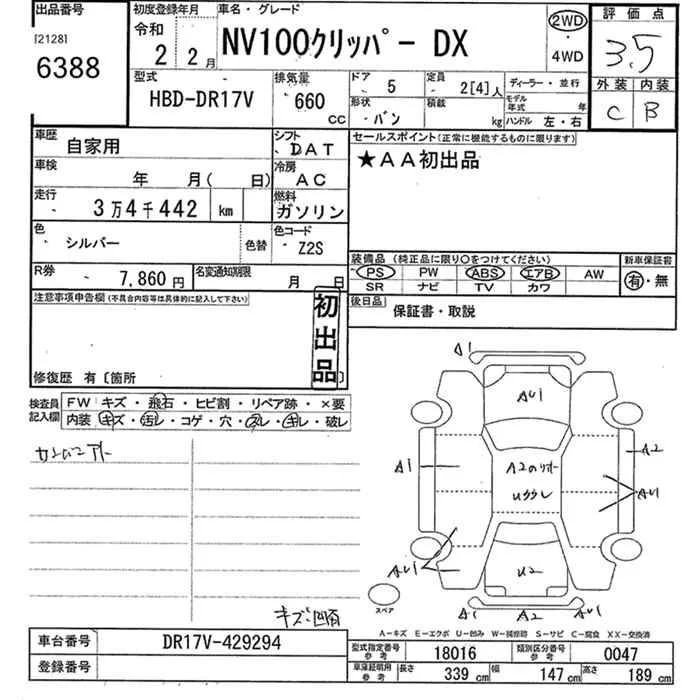 出品番号
[2128]
6388
初度登録年月
令和
2 2月
車名・グレード
NV100クリッパー DX
2WD
・
4WD
評価点
3.5
外装 内装
C B
型式
HBD-DR17V
排気量
660
CC
ドア
5
定員
2[4]人
ディーラー・並行
形状
バン
積載
kg
モデル年式 年
ハンドル 左・右
車歴
自家用
シフト
DAT
セールスポイント(正常に機能するものに限ります)
★AA初出品
車検
年 月( 日)
冷房
AC
走行
3万4千442 km
燃料
ガソリン
色
シルバー
色替
色コード
Z2S
装備品 (純正品に限り○をつけてください)
新車保証書
PS PW ABS エアB AW
SR ナビ TV カワ
有・無
R券
7,860円
名変通知期限
月 日
後日品
保証書・取説
注意事項申告欄(不具合内容等は具体的に記入して下さい)
初出品
修復歴 有〔箇所 〕
検査員記入欄
FW キズ・飛石・ヒビ割・リペア跡・×要
内装 キズ・汚レ・コゲ・穴・スレ・キレ・破レ
A1
AU1
A1
A2
AU1
A2
AU1
U2
スペア
A1 A2 A1
キズ凹有
A−キズ E−エクボ U−凹み W−補修跡 S−サビ C−腐食 XX−交換済
車台番号
DR17V-429294
登録番号
型式指定番号
参考
18016
類別区分番号
参考
0047
車庫証明用
参考
長さ 339cm 幅 147cm 高さ 189cm